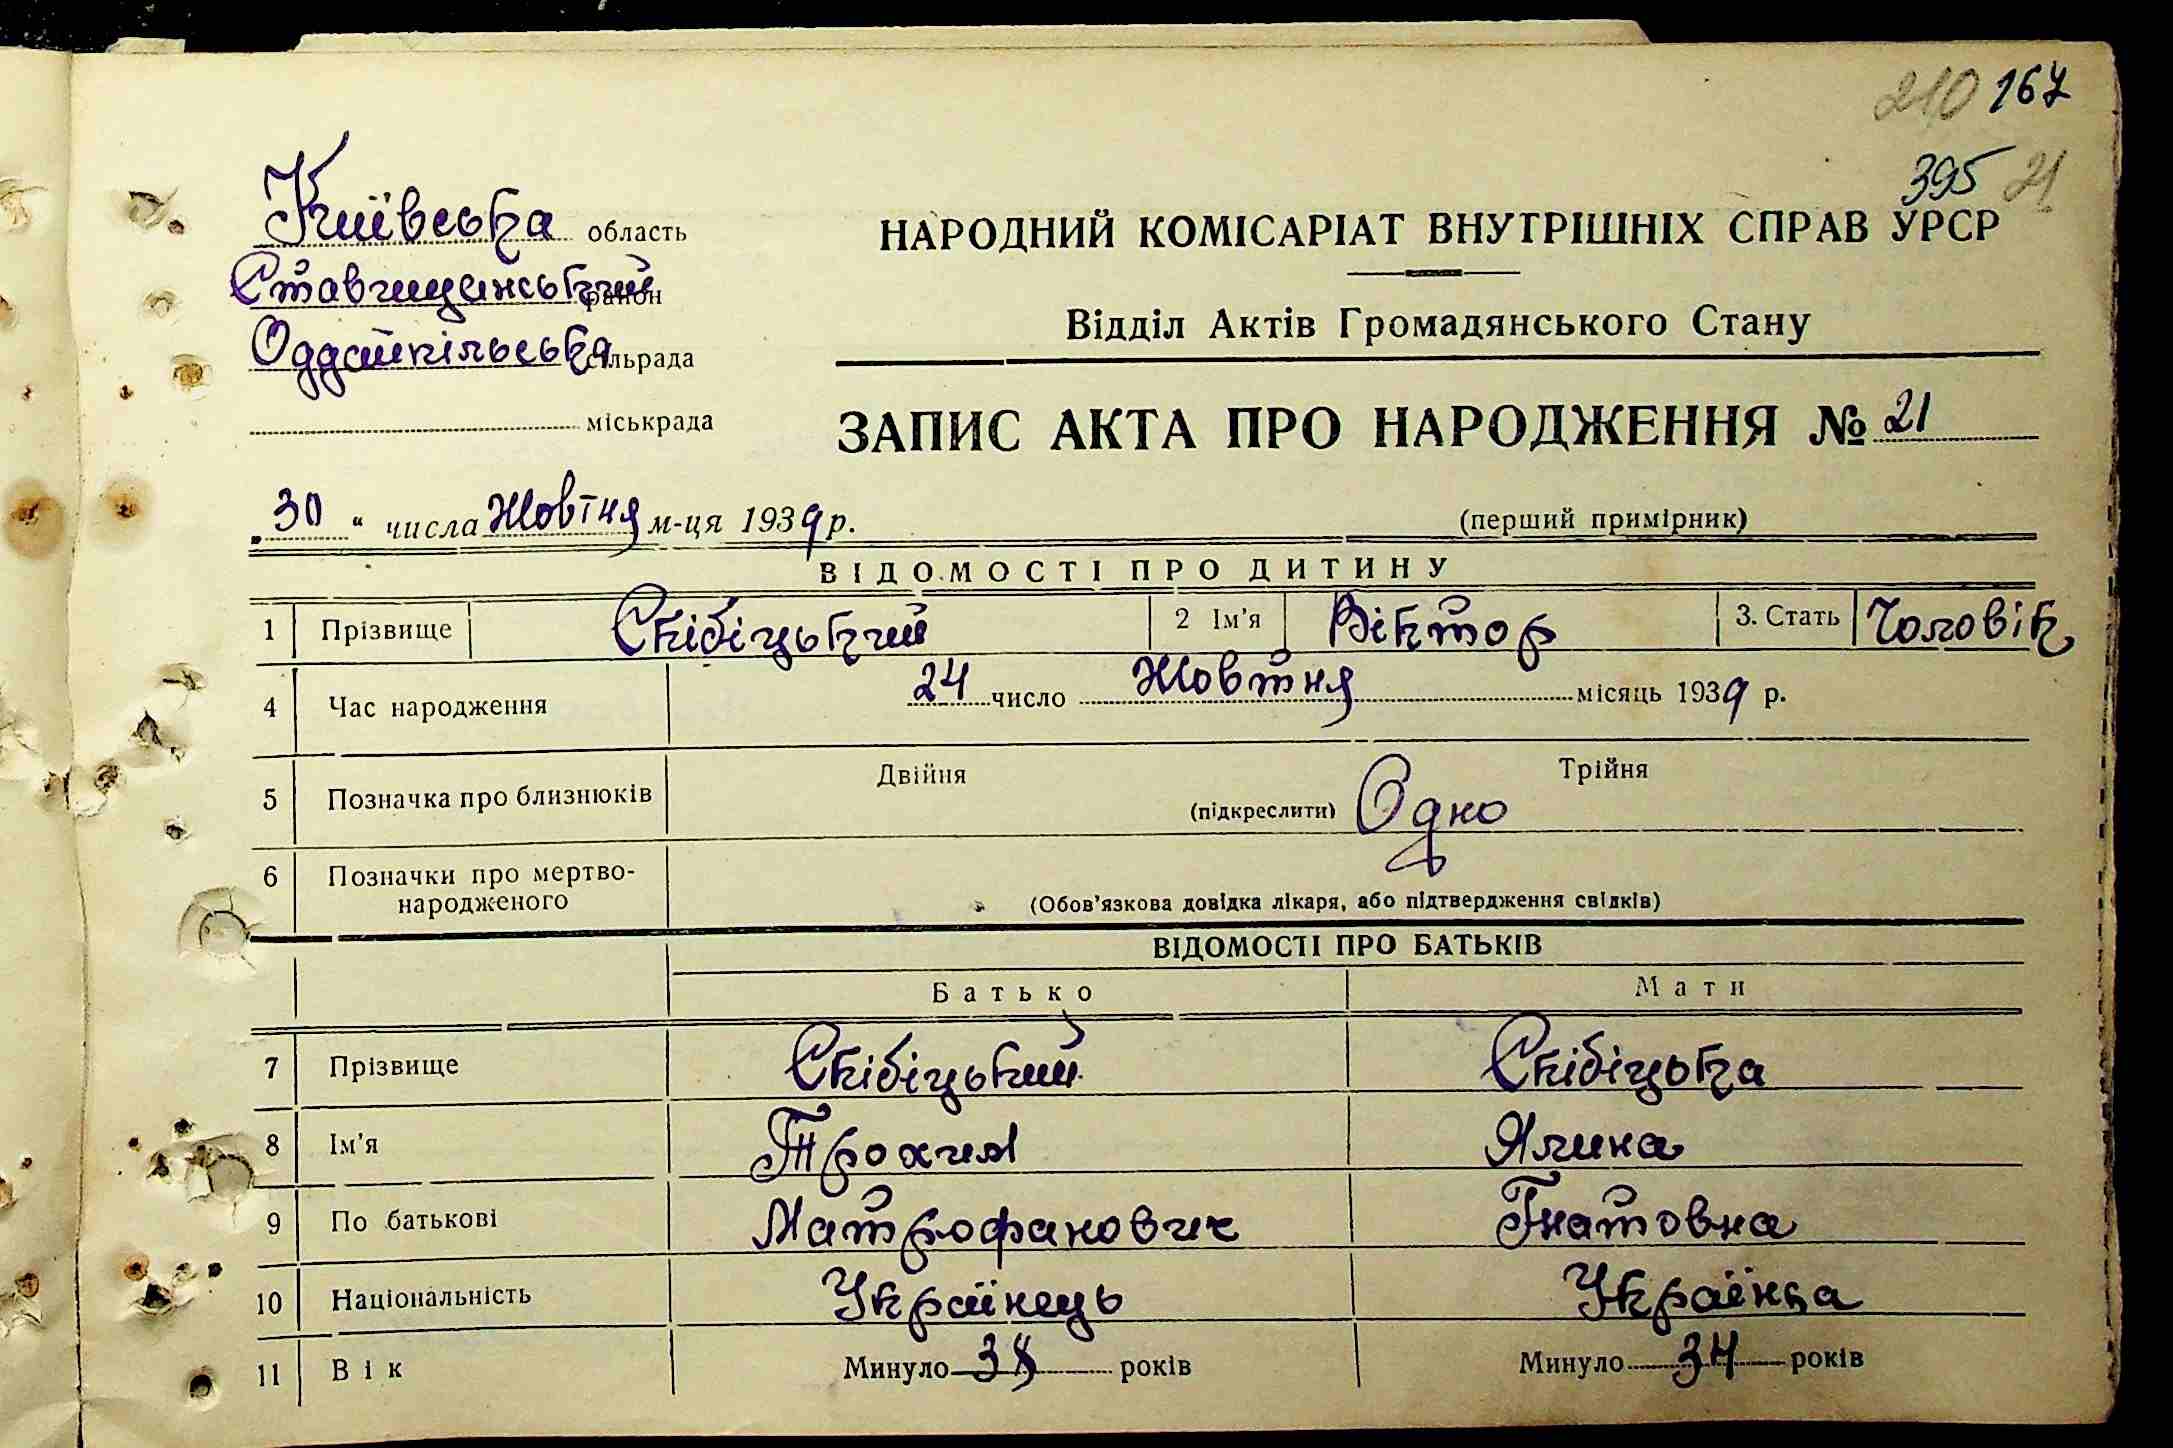 210 167
395 21
Київська область
Ставищанський район
Оддайпільська сільрада
міськрада
НАРОДНИЙ КОМІСАРІАТ ВНУТРІШНІХ СПРАВ УРСР
Відділ Актів Громадянського Стану
ЗАПИС АКТА ПРО НАРОДЖЕННЯ № 21
„30“ числа Жовтня м-ця 1939 р.
(перший примірник)
ВІДОМОСТІ ПРО ДИТИНУ
1 Прізвище Скібіцький 2 Ім'я Віктор 3. Стать Чоловік
4 Час народження 24 число Жовтня місяць 1939 р.
5 Позначка про близнюків Двійня (підкреслити) Одно Трійня
6 Позначки про мертво-
народженого (Обов'язкова довідка лікаря, або підтвердження свідків)
ВІДОМОСТІ ПРО БАТЬКІВ
Батько Мати
7 Прізвище Скібіцький Скібіцька
8 Ім'я Трохим Ялина
9 По батькові Матрофанович Гнатовна
10 Національність Українець Українка
11 Вік Минуло 38 років Минуло 34 років